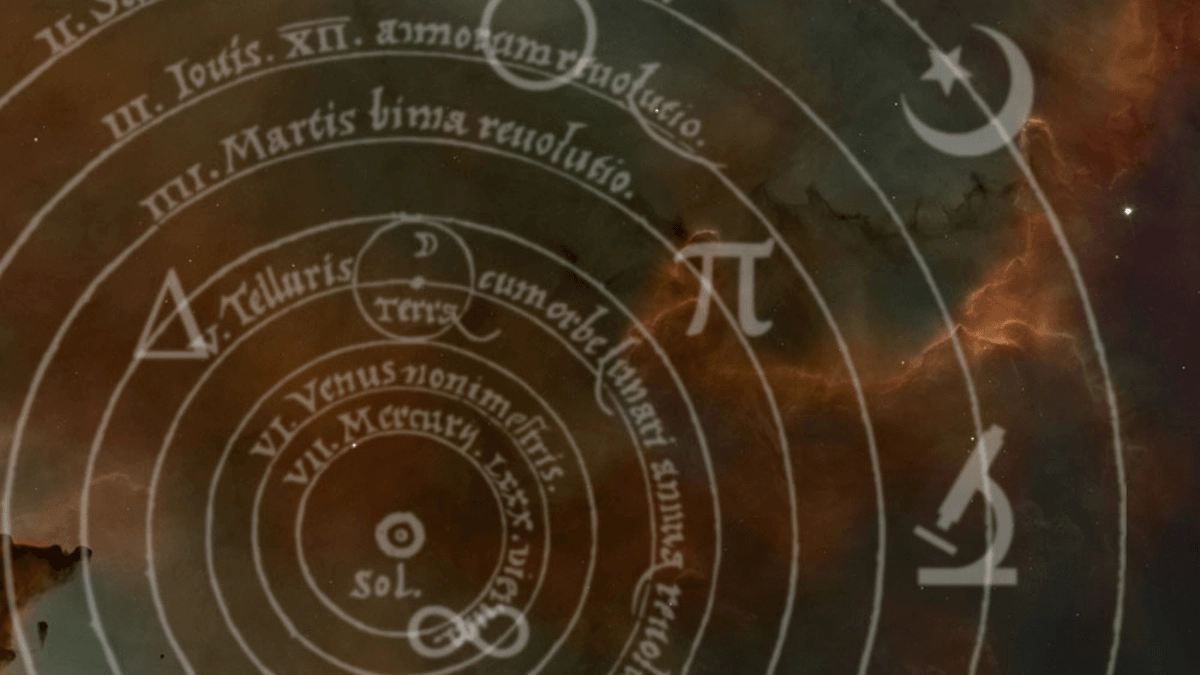 II. S
III. Iouis. XII. annorum reuolutio.
IIII. Martis bima reuolutio.
V. Telluris cum orbe lunari annua reuolu
Terra
VI. Venus nonimestris.
VII. Mercurij. LXXX. dierum
Sol.
π
Δ
∞